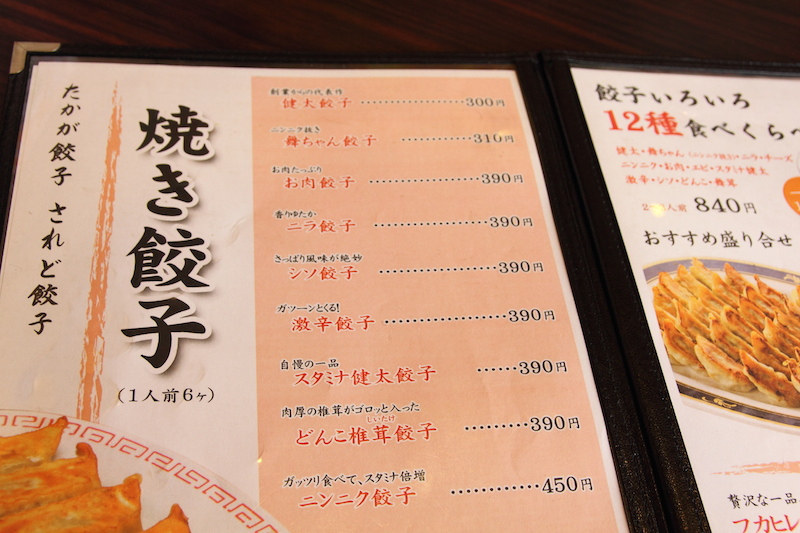 たかが餃子 されど餃子
焼き餃子
(1人前6ヶ)
創業からの代表作
健太餃子 ・・・・・・・・・・・・・・・・・・・・300円
ニンニク抜き
舞ちゃん餃子 ・・・・・・・・・・・・・・・・310円
お肉たっぷり
お肉餃子 ・・・・・・・・・・・・・・・・・・390円
香りゆたか
ニラ餃子 ・・・・・・・・・・・・・・・・・・390円
さっぱり風味が絶妙
シソ餃子 ・・・・・・・・・・・・・・・・・・390円
ガツーンとくる!
激辛餃子 ・・・・・・・・・・・・・・・・・・390円
自慢の一品
スタミナ健太餃子 ・・・・・・390円
肉厚の椎茸がゴロッと入った
しいたけ
どんこ椎茸餃子 ・・・・・・・・・390円
ガッツリ食べて、スタミナ倍増
ニンニク餃子 ・・・・・・・・・・・・450円
餃子いろいろ
12種食べくらべ
健太・舞ちゃん(ニンニク抜き)・ニラ・チーズ
ニンニク・お肉・エビ・スタミナ健太
激辛・シソ・どんこ・舞茸
人前 840円
おすすめ盛り合せ
贅沢な一品
フカヒレ